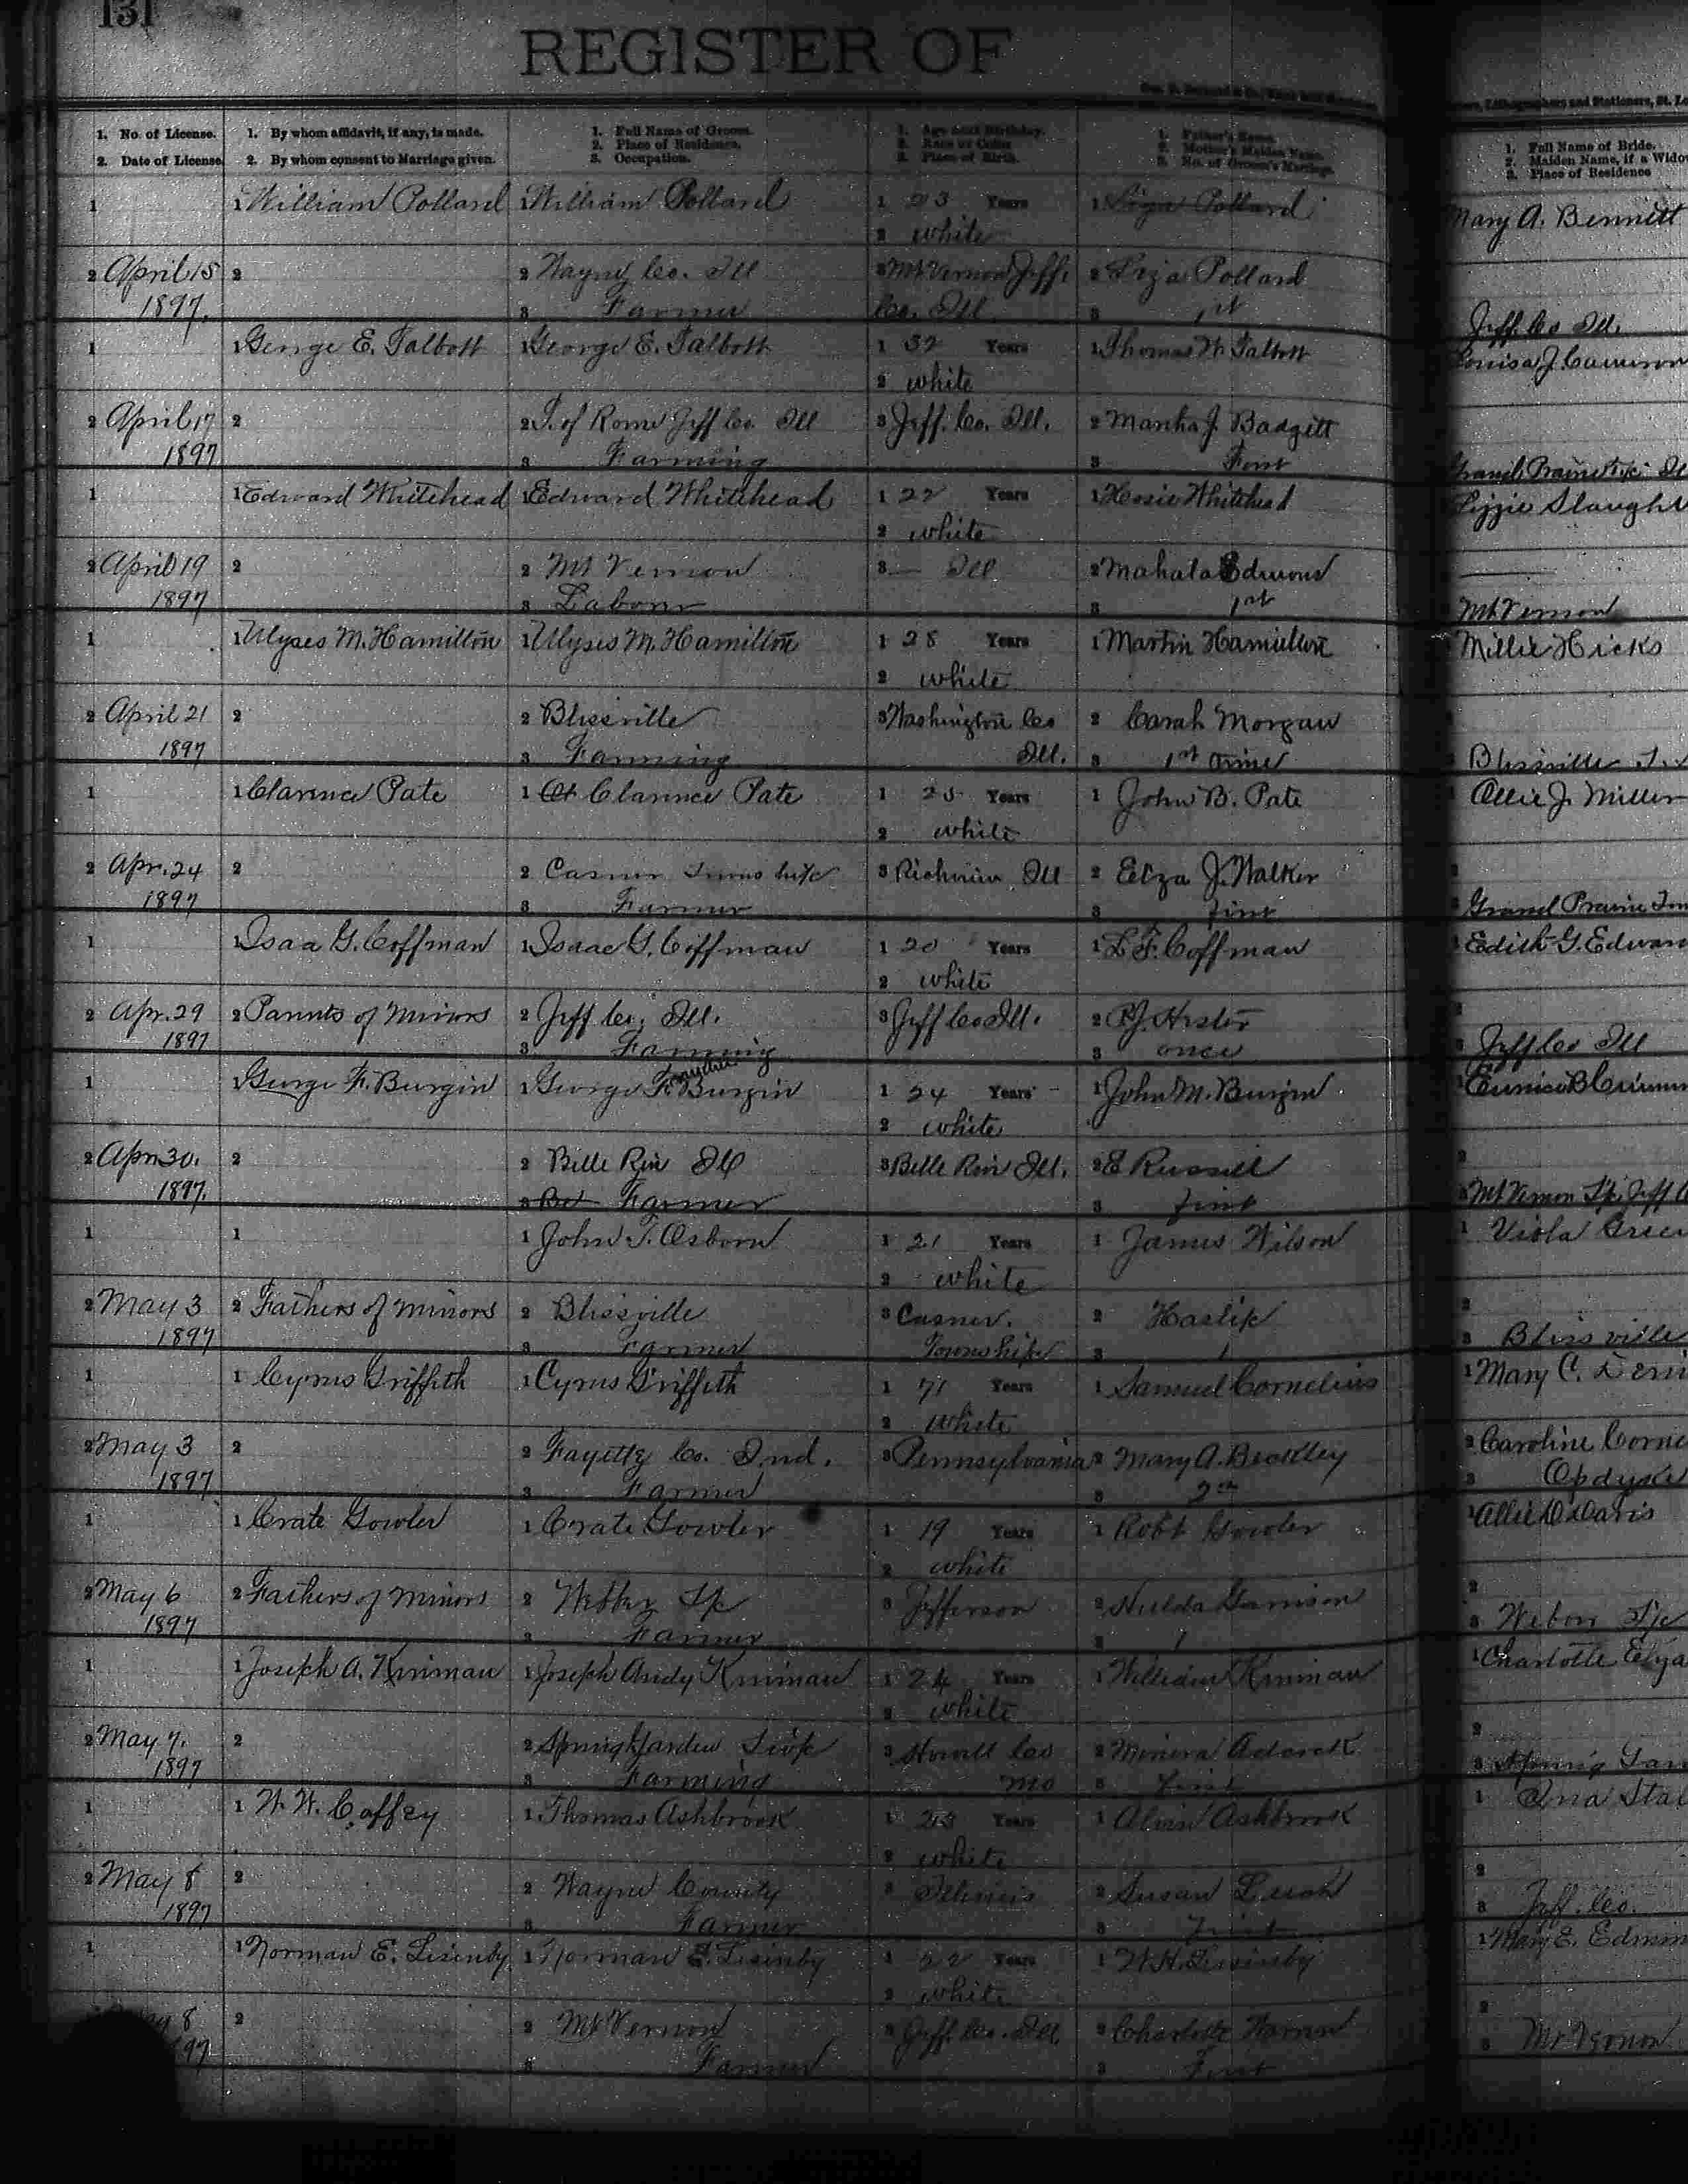 131
REGISTER OF
1. No. of License.
2. Date of License.
1. By whom affidavit, if any, is made.
2. By whom consent to Marriage given.
1. Full Name of Groom.
2. Place of Residence.
3. Occupation.
1. Age next Birthday.
2. Race or Color
3. Place of Birth.
1. Father's Name.
2. Mother's Maiden Name.
3. No. of Groom's Marriage.
Lithographers and Stationers, St.
1. Full Name of Bride.
2. Maiden Name, if a Widow
3. Place of Residence
1 1 William Pollard 1 William Pollard 1 23 Years 1 Pollard Mary A. Bennett
2 white
2 April 15 2 2 Wayne Co. Ill 3 Mt Vernon Jeff. 2 Liza Pollard
1897. 3 Farmer Co. Ill 3 1st Jeff. Co Ill.
1 1 George E. Talbott 1 George E. Talbott 1 32 Years 1 Thomas W. Talbott Louisa J. Cameron
2 white
2 April 17 2 2 T. of Rome Jeff Co. Ill 3 Jeff. Co. Ill. 2 Martha J. Badgett
1897 3 Farming 3 First Grand Prairie
1 1 Edward Whitehead 1 Edward Whitehead 1 22 Years 1 Whitehead Lizzie Slaught
2 white
2 April 19 2 2 Mt Vernon 3 — Ill 2 Mahala
1897 3 Labour 3 1st Mt Vernon
1 1 Ulyses M. Hamilton 1 Ulyses M. Hamilton 1 28 Years 1 Martin Hamilton Millie Hicks
2 white
2 April 21 2 2 Blissville 3 Washington Co 2 Sarah Morgan
1897 3 Farming Ill. 3 1st time Blissville
1 1 Clarence Pate 1 Clarence Pate 1 25 Years 1 John B. Pate Allie J. Miller
2 white
2 Apr. 24 2 2 Casner 3 Richview Ill 2 Eliza J. Walker
1897 3 Farmer 3 first Grand Prairie
1 1 Isaa G. Coffman 1 Isaac G. Coffman 1 20 Years 1 L F. Coffman 1 Edith G. Edwar
2 white
2 Apr. 29 2 Parents of Minors 2 Jeff Co. Ill. 3 Jeff Co Ill. 2 Hester
1897 3 Farming 3 once Jeff Co Ill
1 1 George F. Burgin 1 George F. Burgin 1 24 Years 1 John M. Burgin 1 Eunice B
2 white
2 Apr 30. 2 2 Belle Rive Ill 3 Belle Rive Ill. 2 E Russell
1897. 3 Farmer 3 first Mt Vernon
1 1 1 John T. Osborn 1 21 Years 1 James Wilson 1 Viola
2 white
2 May 3 2 Fathers of minors 2 Blissville 3 Casner. 2 Haslip 2
1897 3 Farmer Township 3 1 3 Blissville
1 1 Cyrus Griffith 1 Cyrus Griffith 1 71 Years 1 Samuel Cornelius 1 Mary C.
2 white
2 May 3 2 2 Fayette Co. Ind. 3 Pennsylvania 2 Mary A. 2 Caroline
1897 3 Farmer 3 2nd 3 Opdyke
1 1 Crate Gowler 1 Crate Gowler 1 19 Years 1 Robt Gowler 1 Allie Davis
2 white
2 May 6 2 Fathers of minors 2 Webber 3 Jefferson 2 Hulda Garrison 2
1897 3 Farmer 3 1 3
1 1 Joseph A. Kniman 1 Joseph Andy Kniman 1 24 Years 1 William Kniman 1 Charlotte
2 white
2 May 7. 2 2 Spring Garden 3 Howell Co 2 2
1897 3 Farming Mo 3 first 3 Spring
1 1 W. W. Coffey 1 Thomas Ashbrook 1 23 Years 1 Ashbrook 1
2 white
2 May 8 2 2 Wayne County 3 Illinois 2 Susan 2
1897 3 Farmer 3 first 3 Jeff. Co.
1 1 Norman E. Lisenby 1 Norman E. Lisenby 1 22 Years 1 W. H. Lisenby 1 Mary E.
2 white
8 2 2 Mt Vernon 3 Jeff. Co. Ill. 2 Charlotte 2
97 3 Farmer 3 First 3 Mt Vernon